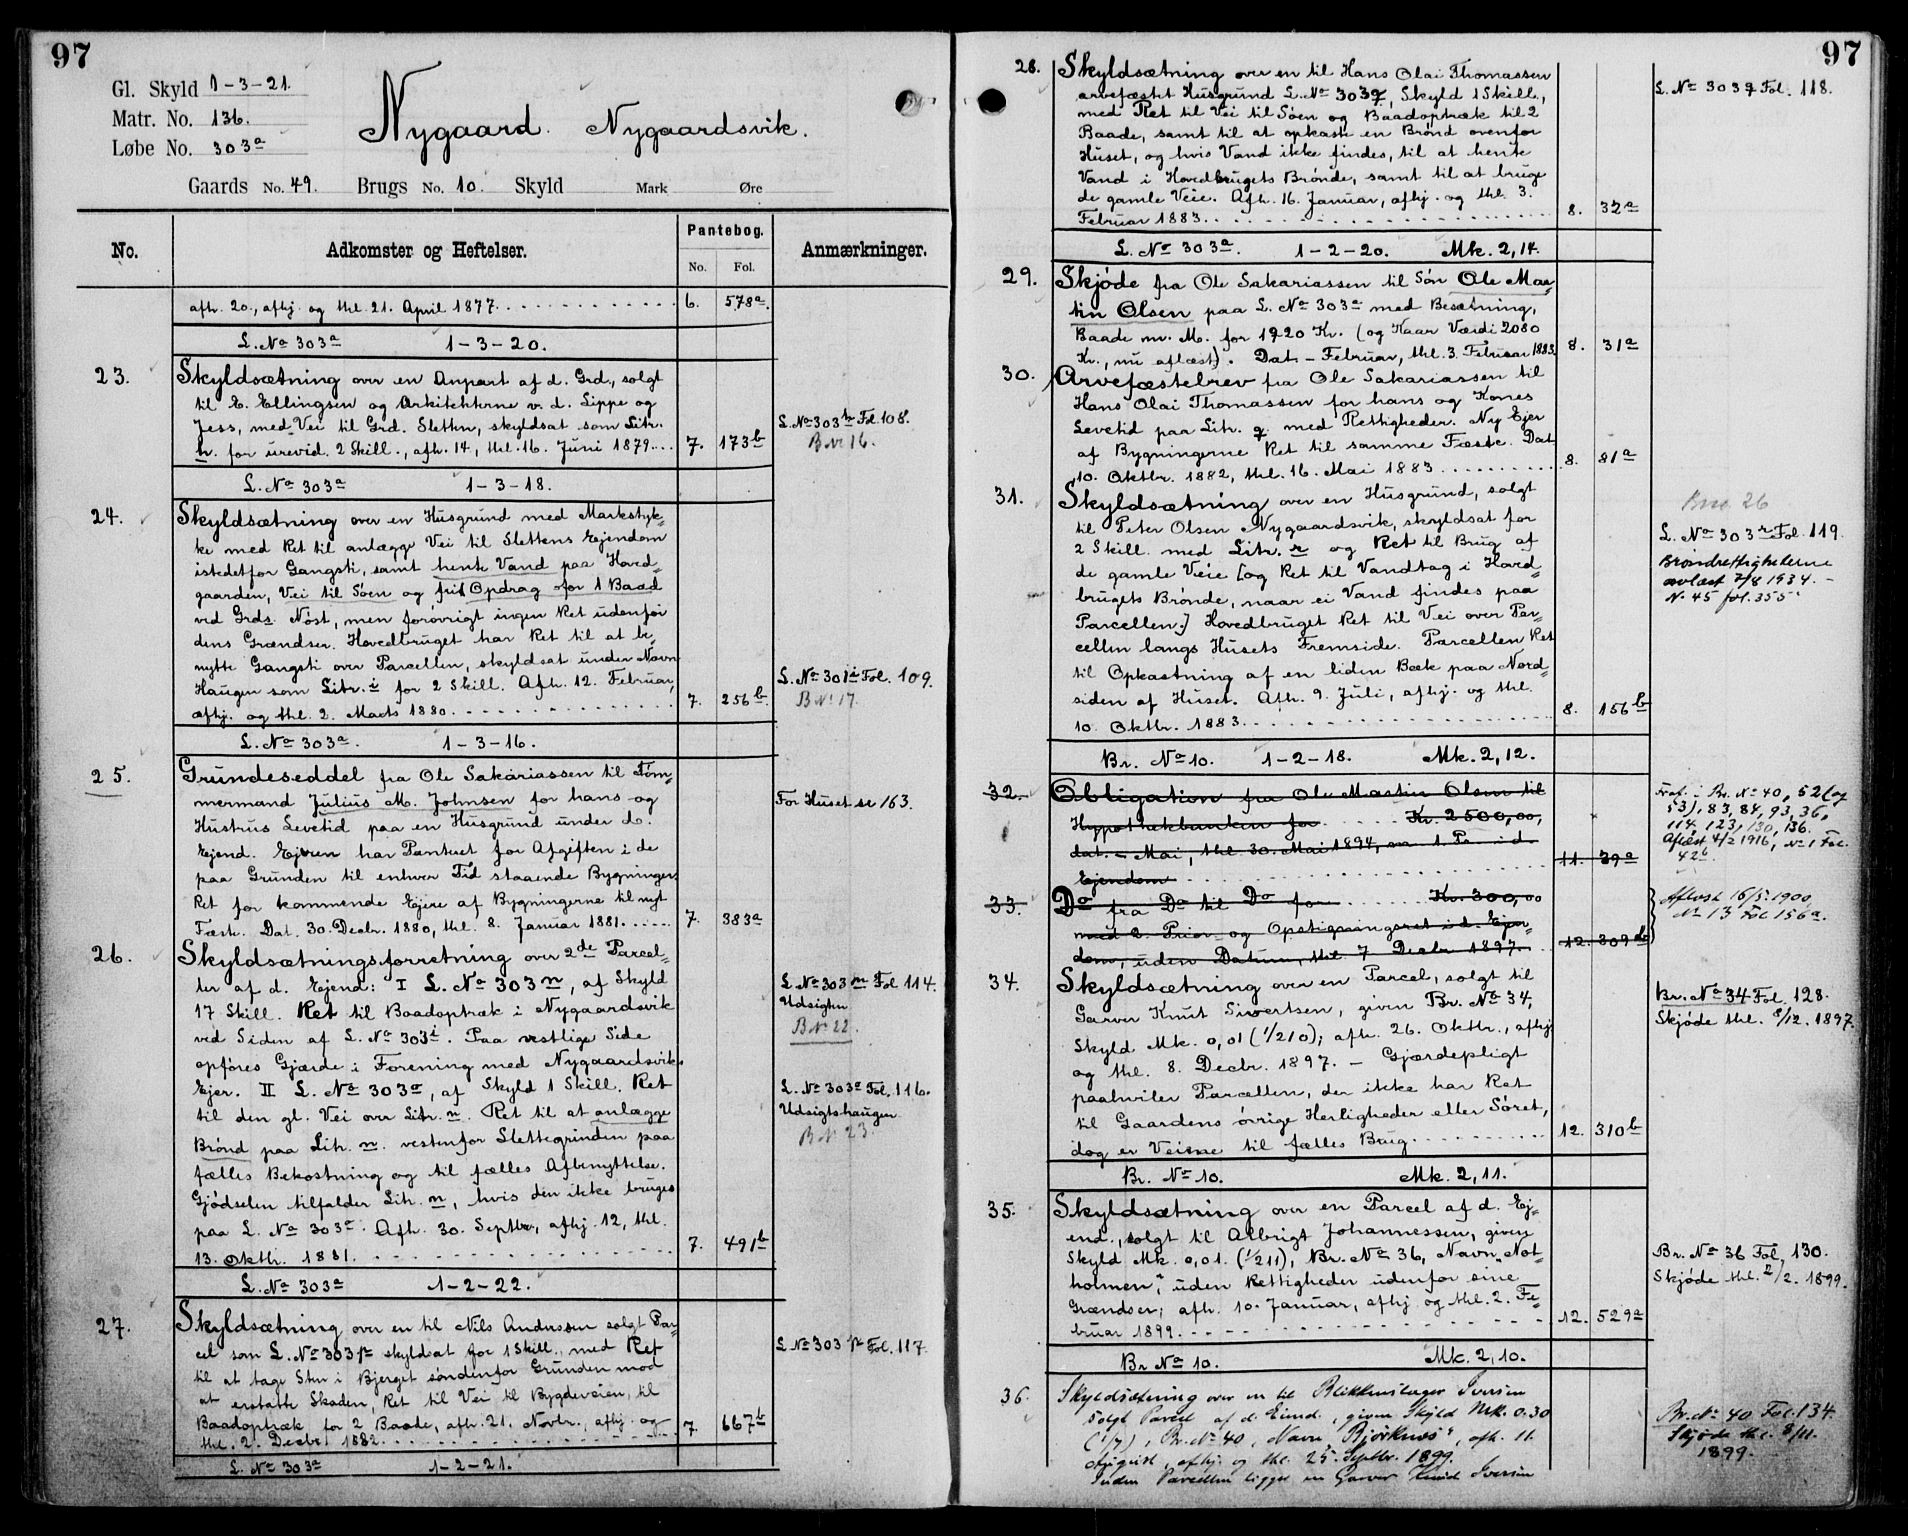 97
Gl. Skyld 1-3-21.
Matr. No. 136.
Løbe No. 303a
Nygaard. Nygaardsvik.
Gaards No. 49. Brugs No. 10. Skyld Mark Øre
No. Adkomster og Heftelser. Pantebog. Anmærkninger.
No. Fol.
afh. 20., afhj. og thl. 21. April 1877. 6. 578a.
L. No 303a 1-3-20.
23. Skyldsætning over en Anpart af d. Grd., solgt
til E. Ellingsen og Arkitekterne v. d. Lippe og
Jess, med Vei til Grd. Sletten, skyldsat som Litr.
h. for urevid. 2 Skill., afh. 14, thl. 16. Juni 1879. 7. 173b
L. No 303h Fol. 108.
B No 16.
L. No 303a 1-3-18.
24. Skyldsætning over en Husgrund med Markstyk-
ke med Ret til anlægge Vei til Slettens Ejendom
istedetfor Gangsti, samt hente Vand paa Hoved-
gaarden, Vei til Søen og frit Opdrag for 1 Baad
ved Grds. Nøst, men forøvrigt ingen Ret udenfor
dens Grændser. Hovedbruget har Ret til at be-
nytte Gangsti over Parcellen, skyldsat under Navn
Haugen som Litr. i for 2 Skill. Afh. 12. Februar,
afhj. og thl. 2. Marts 1880. 7. 256b.
L. No 301i Fol. 109.
B No 17.
L. No 303a. 1-3-16.
25. Grundeseddel fra Ole Sakariassen til Tøm-
mermand Julius M. Johnsen for hans og
Hustrus Levetid paa en Husgrund under do.
Ejend. Ejeren har Panteret for Afgiften i de
paa Grunden til enhver Tid staaende Bygninger.
Ret for kommende Ejere af Bygningerne til nyt
Fæste. Dat. 30. Decbr. 1880, thl. 8. Januar 1881. 7. 383a
For Huset se 163.
26. Skyldsætningsforretning over 2de Parcel-
ler af d. Ejend: I L. No 303n, af Skyld
17 Skill. Ret til Baadoptræk i Nygaardsvik
ved Siden af L. No 303i. Paa vestlige Side
opføres Gjærde i Forening med Nygaardsviks
Ejer. II L. No 303o, af Skyld 1 Skill. Ret
til den gl. Vei over Litr. n. Ret til at anlægge
Brønd paa Litr. n. vestenfor Slettegrinden paa
fælles Bekostning og til fælles Afbenyttelse.
Gjødselen tilfalder Litr. n, hvis den ikke bruges
paa L. No 303o. Afh. 30. Septbr, afhj. 12, thl.
13. Oktbr. 1881. 7. 491b
L. No 303n Fol. 114.
Udsigten
B No 22.
L. No 303o Fol. 116.
Udsigtshaugen
B No 23.
L. No 303a 1-2-22.
27. Skyldsætning over en til Nils Anderssen solgt Par-
cel som L. No 303p skyldsat for 1 Skill., med Ret
til at tage Sten i Bjerget søndenfor Grunden mod
at erstatte Skaden, Ret til Vei til Bygdeveien, til
Baadoptræk for 2 Baade, afh. 21. Novbr., afhj. og
thl. 2. Decbr. 1882. 7. 667b
L. No 303p Fol. 117.
L. No 303a 1-2-21.
97
28. Skyldsætning over en til Hans Olai Thomassen
arvefæstet Husgrund L. No 303q, Skyld 1 Skill.,
med Ret til Vei til Søen og Baadoptræk til 2
Baade, samt til at opkaste en Brønd ovenfor
Huset, og hvis Vand ikke findes, til at hente
Vand i Hovedbrugets Brønde, samt til at bruge
de gamle Veie. Afh. 16. Januar, afhj. og thl. 3.
Februar 1883. 8. 32a
L. No 303q Fol. 118.
L. No 303a. 1-2-20. Mk. 2,14.
29. Skjøde fra Ole Sakariassen til Søn Ole Mar-
tin Olsen paa L. No 303a med Besætning,
Baade m. M. for 1920 Kr. (og Kaar Værdi 2080
Kr., nu aflæst). Dat. - Februar, thl. 3. Februar 1883. 8. 31a
30. Arvefæstebrev fra Ole Sakariassen til
Hans Olai Thomassen for hans og Kones
Levetid paa Litr. q. med Rettigheder. Ny Ejer
af Bygningerne Ret til samme Fæste. Dat.
10. Oktbr. 1882, thl. 16. Mai 1883 8. 81a
31. Skyldsætning over en Husgrund, solgt
til Peter Olsen Nygaardsvik, skyldsat for
2 Skill. med Litr. r og Ret til Brug af
de gamle Veie [og Ret til Vandtag i Hoved-
brugets Brønde, naar ei Vand findes paa
Parcellen.] Hovedbruget Ret til Vei over Par-
cellen langs Husets Fremside. Parcellen Ret
til Opkastning af en liden Bæk paa Nord-
siden af Huset. Afh. 9. Juli, afhj. og thl.
10. Oktbr. 1883. 8. 156b
Bno 26
L. No 303r Fol. 119.
Brøndrettighetene
avlæst 7/8 1934. -
N. 45 fol. 355.
Br. No 10. 1-2-18. Mk. 2,12.
32. Obligation fra Ole Martin Olsen til
Hypothekbanken for Kr. 2500,00,
dat. - Mai, thl. 30. Mai 1894, m 1. Pr. i d.
Ejendom 11. 39a
Fraf. i Br. No 40, 52 (og
53), 83, 84, 93, 36,
114, 123, 130, 136.
Aflæst 4/2 1916, No 1 Fol.
42b.
33. Do fra Do til Do for Kr. 300,00
med 2. Prior. og Opstigningsret i d. Ejen-
dom, uden Datum, thl. 7 Decbr 1897. 12. 309b
Aflæst 16/5. 1900,
No 13 Fol 156a.
34. Skyldsætning over en Parcel, solgt til
Garver Knut Sivertsen, given Br. No 34,
Skyld Mk. 0,01 (1/210); afh. 26. Oktbr., afhj
og thl. 8. Decbr. 1897. - Gjærdepligt
paahviler Parcellen, der ikke har Ret
til Gaardens øvrige Herligheder eller Søret,
dog er Veiene til fælles Brug. 12. 310b
Br. No 34 Fol. 128.
Skjøde thl. 8/12. 1897.
Br. No 10. Mk. 2,11.
35. Skyldsætning over en Parcel af d. Ej-
end., solgt til Albrigt Johannessen, given
Skyld Mk. 0,01. (1/211), Br. No 36, Navn „Not-
holmen," uden Rettigheder udenfor sine
Grændser; afh. 10. Januar, afhj og thl. 2. Fe-
bruar 1899. 12. 529a
Br. No 36 Fol. 130.
Skjøde thl. 2/2. 1899.
Br No 10. Mk. 2,10.
36. Skyldsætning over en til Blikkenslager Iversen
solgt Parcel af d. Eiend., given Skyld Mk. 0.30
(1/7), Br. No 40, Navn „Bjørknes", afh. 11.
August, afhj. og thl. 25. Septbr. 1899.
Inden Parcellen ligger en Garver Knut Iversen
Br. No 40 Fol. 134.
Skjøde thl. 8/11.
1899.